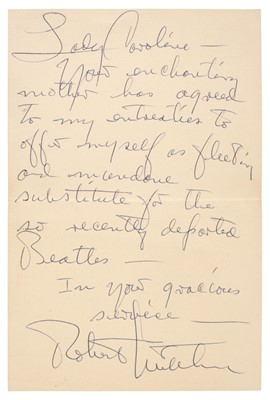 Lady Caroline —
Your enchanting
mother has agreed
to my entreaties to
offer myself as fleeting
and
substitute for the
so recently departed
Beatles —
In your gracious
service —
Robert